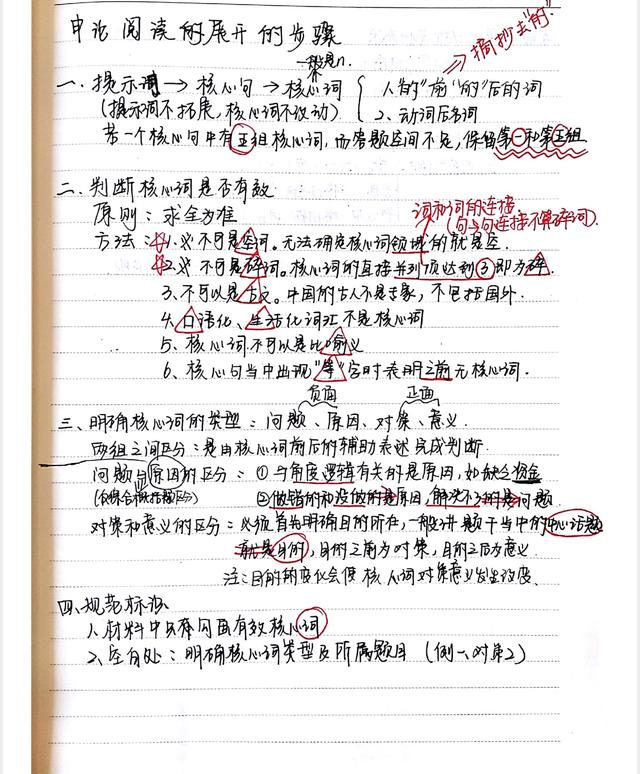 申论阅读的展开的步骤
⇒摘抄去"的".
一般是n.
一、提示词→核心句→核心词 { 1、"的"前"的"后的词
(提示词不拓展,核心词不改动) 2、动词后名词
若一个核心句中有五组核心词,而答题空间不足,保留第一和第五组
二、判断核心词是否有效
原则:求全为准
词和词的连接
(句与句连接不算碎词)
方法:1、必不可是空词。无法确定核心词领域的就是空.
2、必不可是碎词。核心词的直接并列项达到③即为碎
3、不可以是古文。中国的古人不是专家,不包括国外.
4、口语化、生活化词汇不是核心词
5、核心词不可以是比喻义
6、核心句当中出现"等"字时表明之前无核心词.
负面 正面
三、明确核心词的类型:问题、原因、对策、意义.
两组之间区分:是由核心词前后的辅助表述完成判断.
问题与原因的区分:①与角度逻辑有关的是原因,如缺乏资金
②做错的和没做的是原因,解决不了的是问题
对策和意义的区分:必须首先明确目的所在,一般讲题干当中的中心话题
就是目的,目的之前为对策,目的之后为意义
注:目的的变化会使核心词对策意义发生改变.
四、规范标识
1、材料中只标句画有效核心词
2、空白处:明确核心词类型及所属题目(例一、对策2)